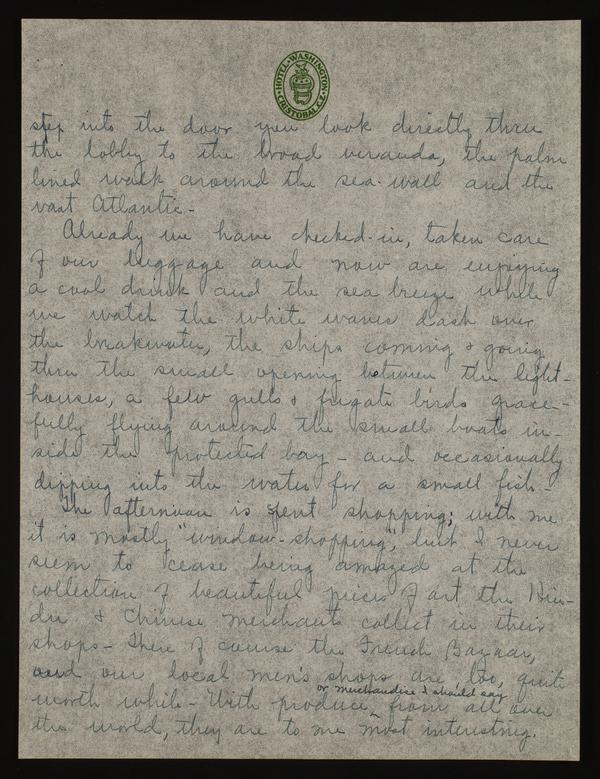 HOTEL · WASHINGTON · CRISTOBAL C.Z.
step into the door you look directly thru
the lobby to the broad veranda, the palm
lined walk around the sea-wall and the
vast Atlantic -
Already we have checked-in, taken care
of our luggage and now are enjoying
a cool drink and the sea breeze while
we watch the white waves dash over
the breakwater, the ships coming & going
thru the small opening between the light-
houses, a few gulls & frigate birds grace-
fully flying around the small boats in-
side the protected bay - and occasionally
dipping into the water for a small fish -
The afternoon is spent shopping; with me
it is mostly "window-shopping", but I never
seem to cease being amazed at the
collection of beautiful pieces of art the Hin-
du & Chinese merchants collect in their
shops - There of course the French Bazaar,
and our local men's shops are, too, quite
or merchandise I should say
worth while - With produce from all over
the world, they are to me most interesting.